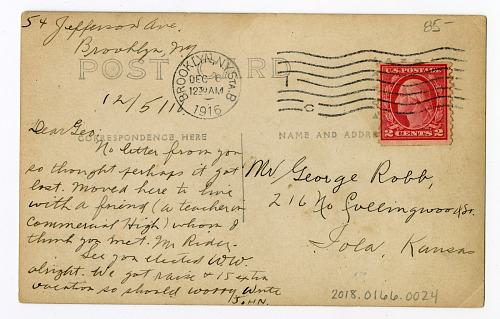 54 Jefferson Ave.
Brooklyn, NY
85-
POST CARD
BROOKLYN, N.Y. STA. B
DEC 6
12 30 AM
1916
U.S. POSTAGE
2 CENTS 2
12/5/1
CORRESPONDENCE HERE
NAME AND ADDRE
Dear Geo.
No letter from you
so thought perhaps it got
lost. Moved here to live
with a friend (a teacher in
Commercial High) whom I
think you met. Mr Rider-
See you elected W.W.
alright. We got raise & 15 extra
vacation so should worry. Write
JOHN.
Mr George Robb,
216 No Gollingwood St.
Iola, Kansas
2018.0166.0024